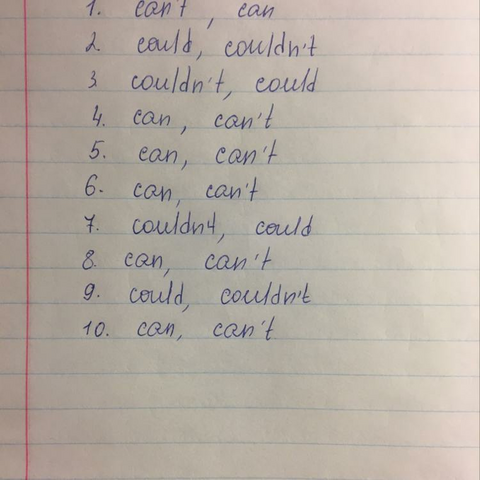 1. can't, can
2. could, couldn't
3. couldn't, could
4. can, can't
5. can, can't
6. can, can't
7. couldn't, could
8. can, can't
9. could, couldn't
10. can, can't